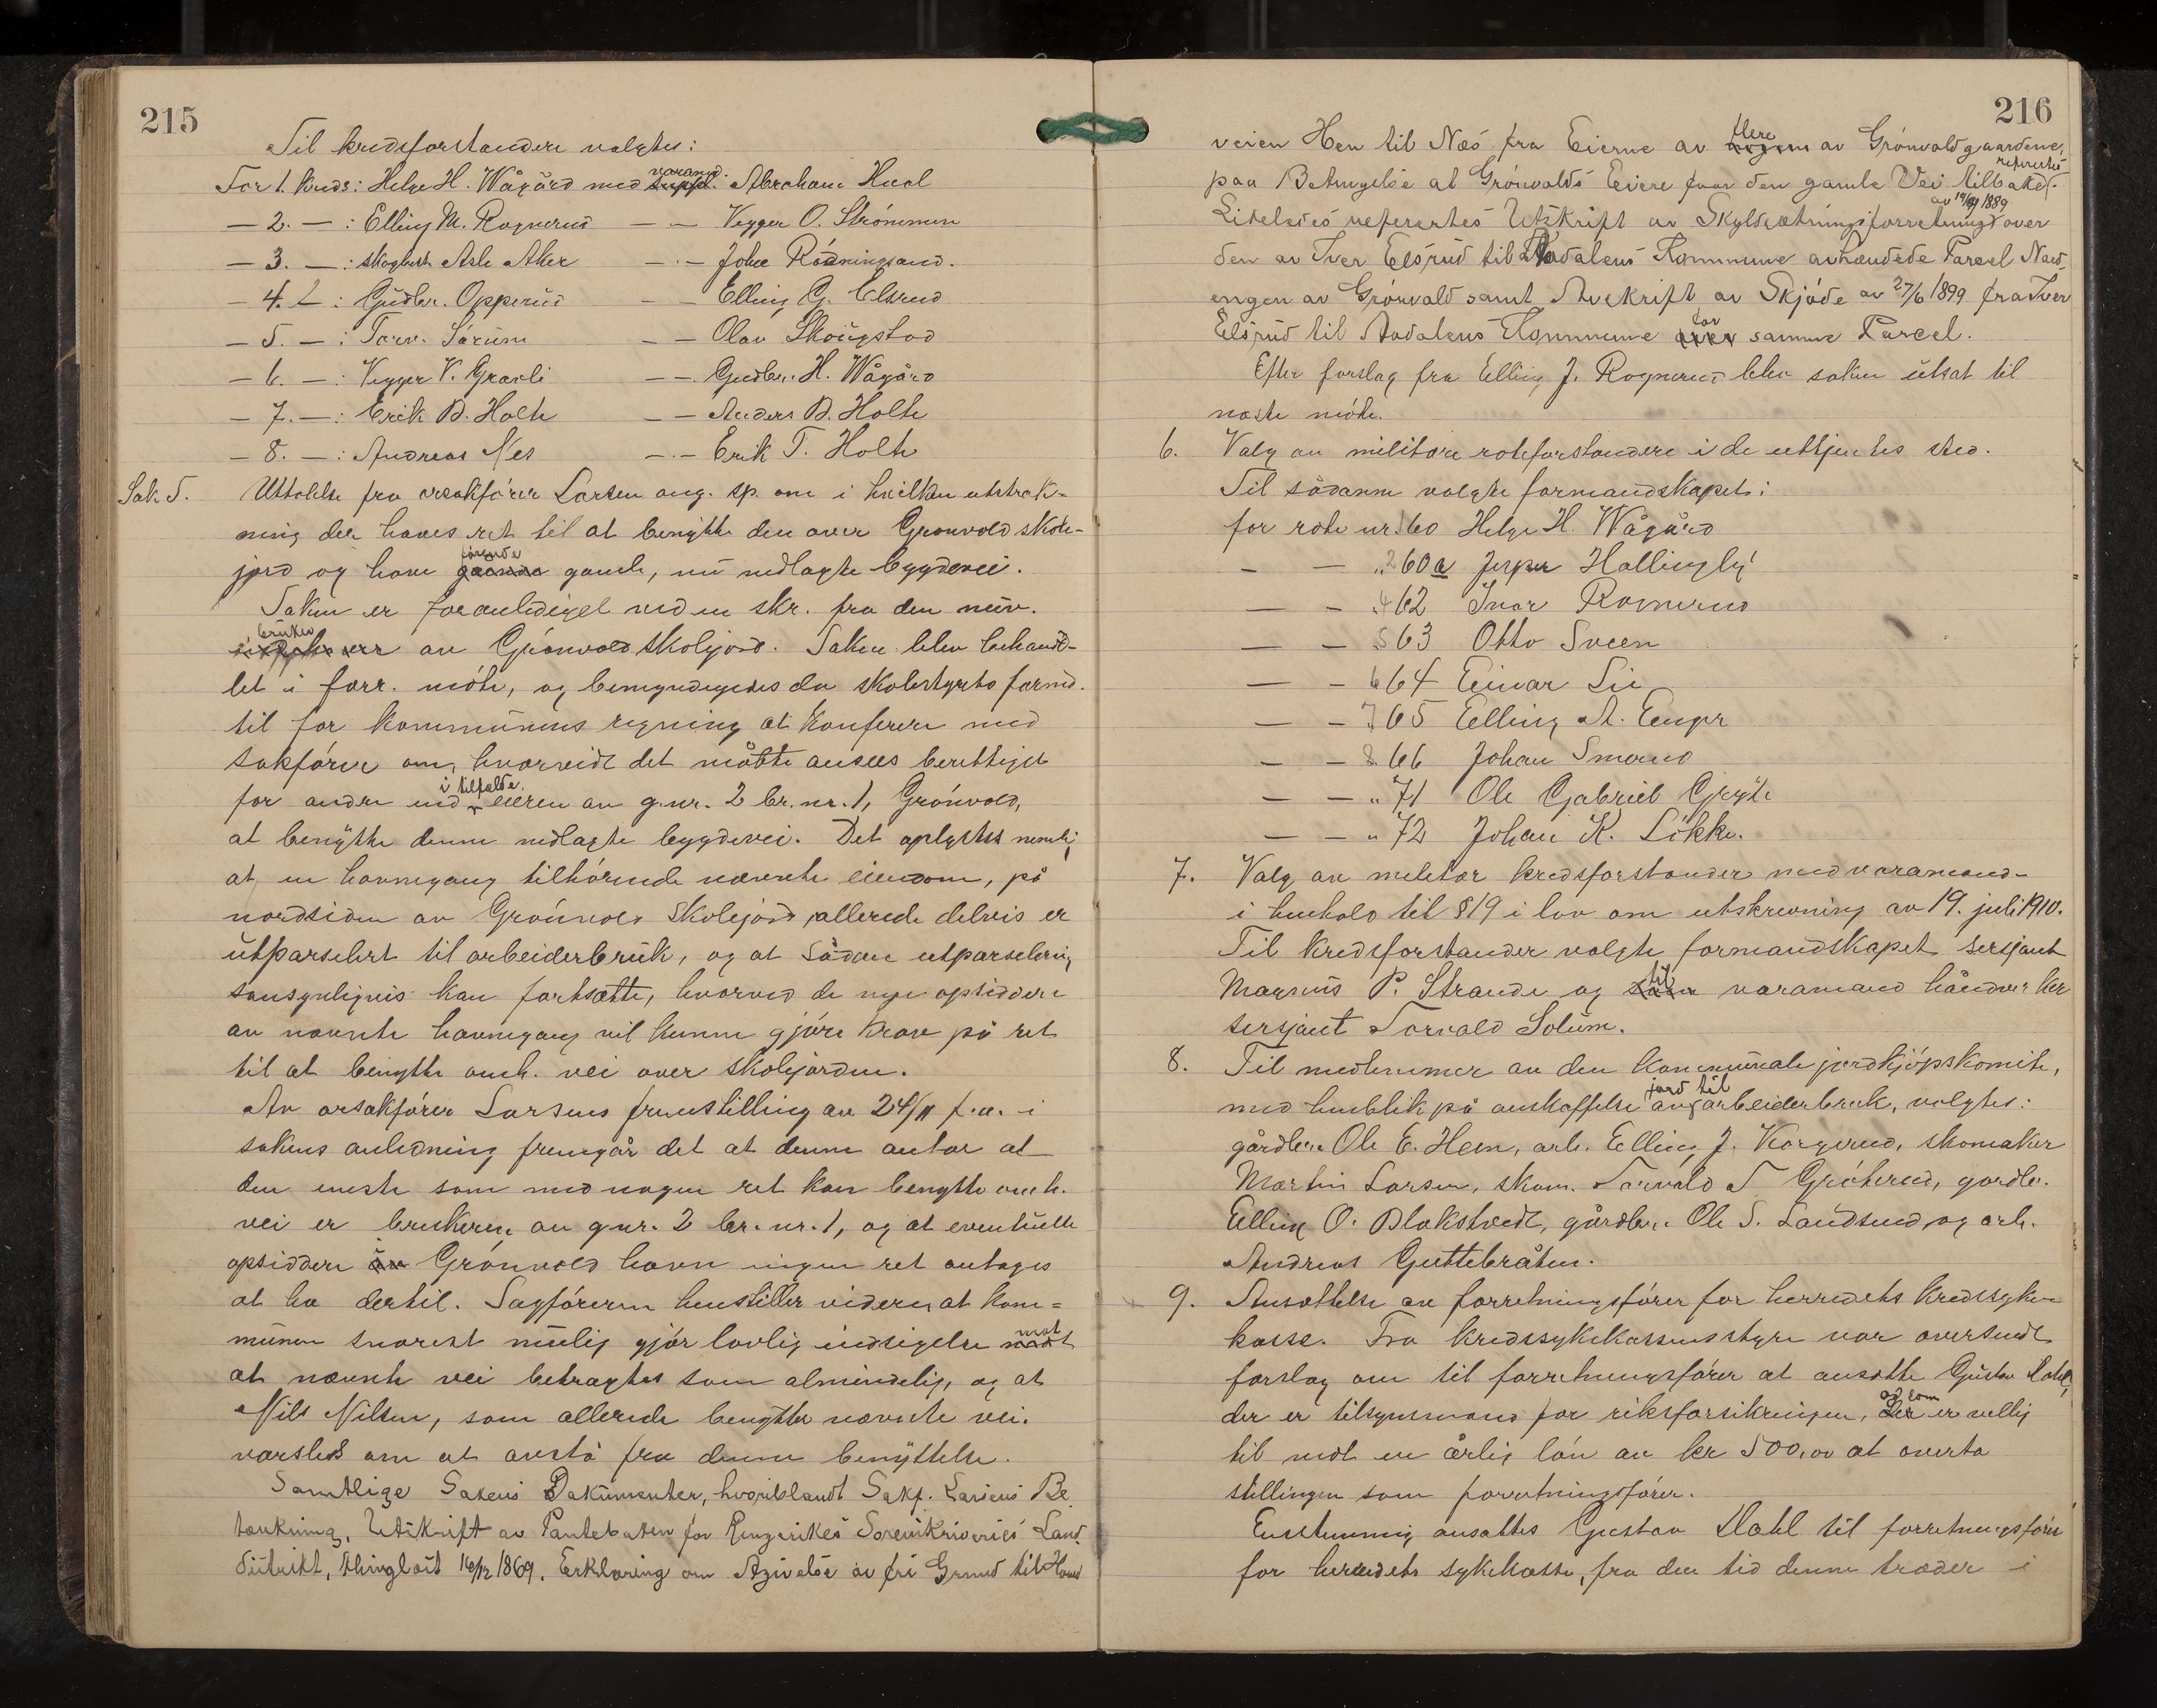 215
Til kredsforstandere valgtes:
For 1. kreds: Helge H. Wågård med suppl. varamd. Abraham Hval
— 2. — : Elling M. Rognerud — — Vegger O. Strømmen
— 3. — : skogbest. Asle Aker — — Johe Rødningsand.
— 4. — : Gudbr. Opperud — — Elling G. Elsrud
— 5. — : Torv. Sørum — — Olav Skougstad
— 6. — : Vegger V. Graali — — Gudbr. H. Wågård
— 7. — : Erik B. Holte — — Anders B. Holte
— 8. — : Andreas Nes — — Erik T. Holte
Sak 5. Uttalelse fra orsakfører Larsen ang. sp. om i hvilken utstræk-
ning der haves ret til at benytte den over Grønvold skole-
jord og have førende gamle, nu nedlagte bygdevei.
Saken er foranlediget ved en skr. fra den nuv.
bruker av Grønvold skolejord. Saken blev behand-
let i forr. møte, og bemyndigedes da skolestyrets formd.
til for kommunens regning at konferere med
sakfører om, hvorvidt det måtte ansees berettiget
for andre end i tilfælde eieren av g.nr. 2 br.nr. 1, Grønvold,
at benytte denne nedlagte bygdevei. Det oplystes nemlig
at en havnegang tilhørende nævnte eiendom, på
nordsiden av Grønvold skolejord allerede delvis er
utparselert til arbeiderbruk, og at sådan utparselering
sansynligvis kan fortsætte, hvorved de nye opsiddere
av nævnte havnegang vil kunne gjøre krav på ret
til at benytte omh. vei over skolejorden.
Av orsakfører Larsens fremstilling av 24/11 f.a. i
sakens anledning fremgår det at denne antar at
den eneste som med nogen ret kan benytte omh.
vei er brukeren av gnr. 2 br. nr. 1, og at eventuelle
opsiddere av Grønvold havn ingen ret antages
at ha dertil. Sagføreren henstiller videre, at kom=
munen snarest mulig gjør lovlig indsigelse mot
at nævnte vei betragtes som almindelig, og at
Nils Nilsen, som allerede benytter nævnte vei.
varsles om at avstå fra denne benyttelse.
Samtlige Sakens Dokumenter, hvoriblandt Sakf. Larsens Be
tænkning, Utskrift av Panteboken for Ringerikes Sorenskriveries Land
distrikt, thinglæst 16/12 1869, Erklæring om Avgivelse av fri Grund til Hoved
216
veien Hen til Næs fra Eierne av flere av Grønvoldgaardene,
paa Betingelse at Grønvolds Eiere faar den gamle Vei tilbake refererts.
Likeledes referertes Utskrift av Skyldsætningsforretning av 19/9 1889 over
den av Iver Elsrud til Aadalens Kommune avhændede Parcel Nord
engen av Grønvold samt Avskrift av Skjøde av 27/6 1899 fra Iver
Elsrud til Aadalens Kommune for samme Parcel.
Efter forslag fra Elling J. Rognerud blev saken utsat til
næste møte.
6. Valg av militære roteforstandere i de uttjentes sted.
Til sådanne valgte formandskapet:
for rote nr. 160 Helge H. Wågård
— — „ 260a Jesper Hallingby
— — 462 Ivar Romerud
— — 563 Otto Sveen
— — 664 Einar Lie
— — 765 Elling A. Enger
— — 866 Johan Smerud
— — „ 71 Ole Gabriel Gryte
— — „ 72 Johan K. Løkke.
7. Valg av militær kredsforstander med varamand
i henhold til § 19 i lov om utskrevning av 19. juli 1910.
Til kredsforstander valgte formandskapet sersjant
Magnus P. Strande og til varamand håndverker
sersjant Torvald Solum.
8. Til medlemmer av den kommunale jordkjøpskomite,
med henblik på anskaffelse av jord til arbeiderbruk, valgtes:
gårdbr. Ole E. Hem, arb. Elling J. Kørgerud, skomaker
Martin Larsen, skom. Torvald T Grøterud, gårdbr.
Elling O. Blakstvedt, gårdbr. Ole S. Landsend og arb.
Andreas Guttebråten.
9. Ansættelse av forretningsfører for herredets kredssyke
kasse. Fra kredssykekassens styre var oversendt
forslag om til forretningsfører at ansætte Gustav Dahl,
der er tilsynsmand for riksforsikringen, og som er villig
til mot en årlig løn av kr 500,00 at overta
stillingen som forretningsfører.
Enstemmig ansattes Gustav Dahl til forretningsfører
for herredets sykekasse, fra den tid denne træder i